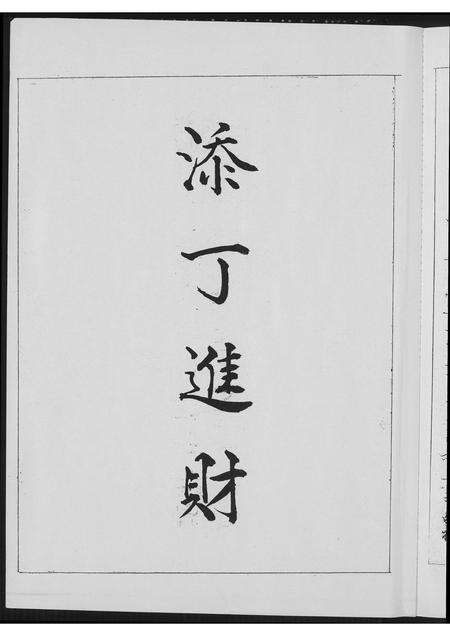 添丁進財